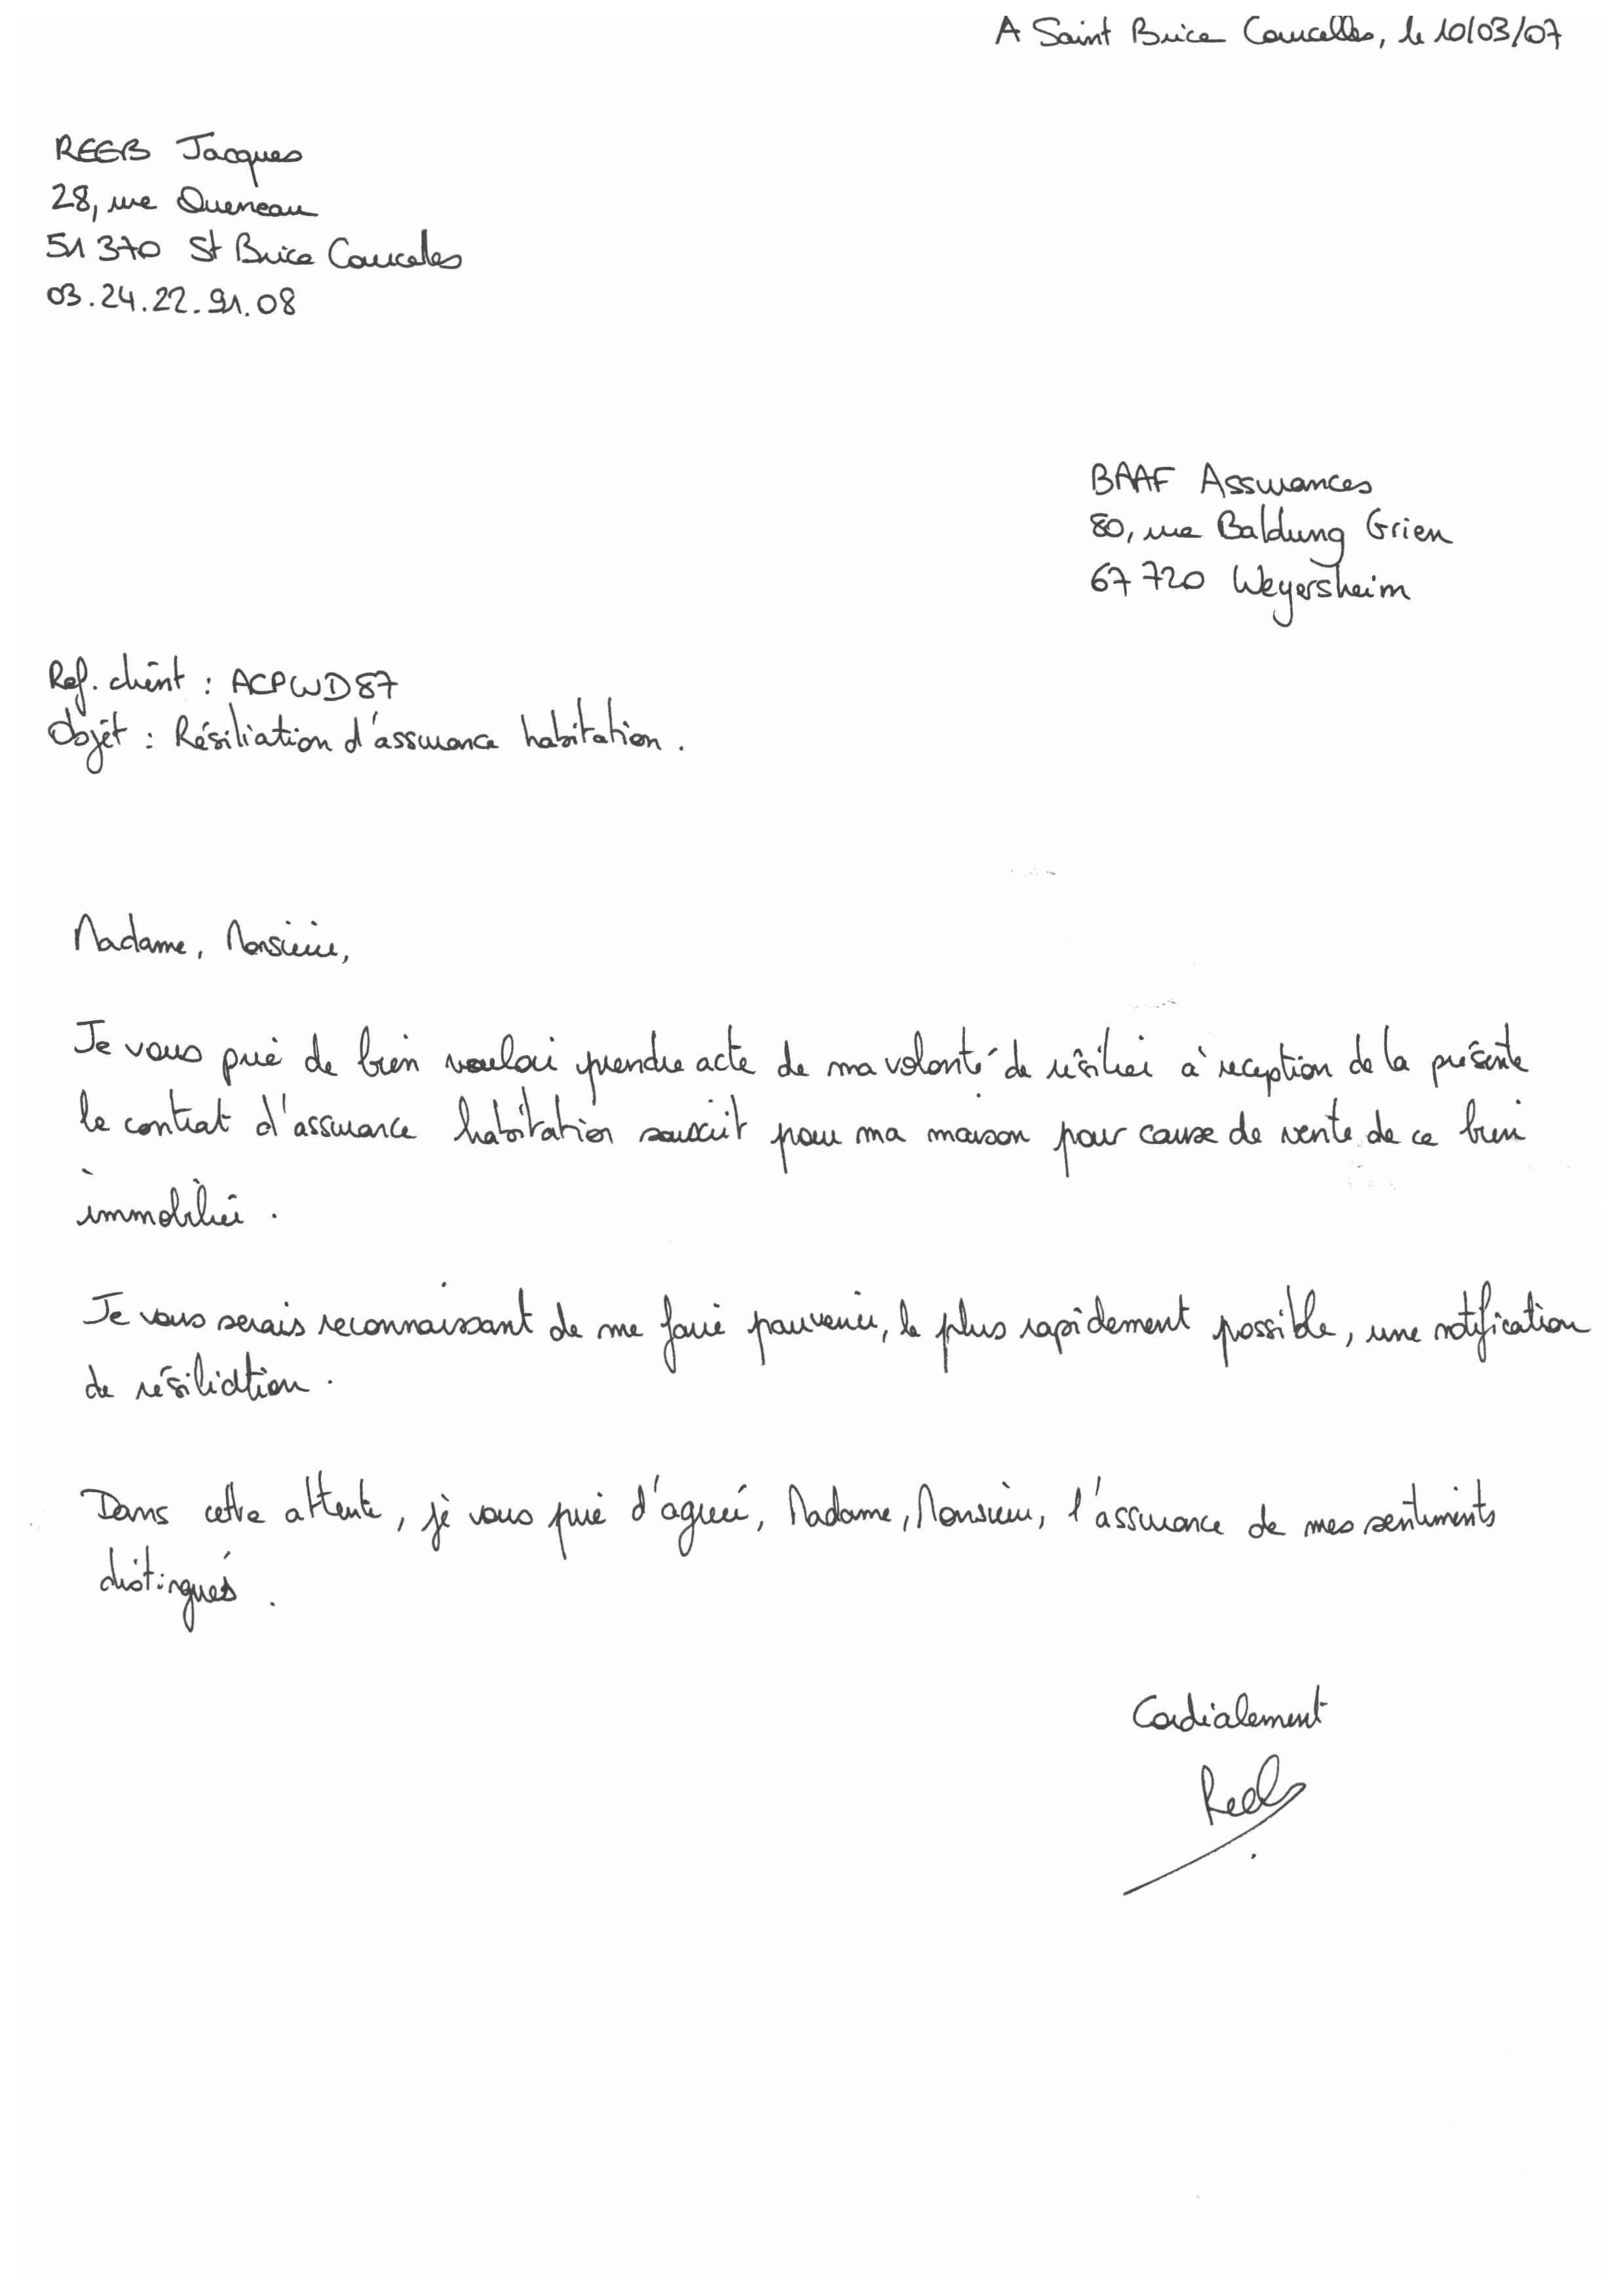 A Saint Brice Courcelles, le 10/03/07
REEB Jacques
28, rue Queneau
51 370 St Brice Courcelles
03.24.22.91.08
BAAF Assurances
80, rue Baldung Grien
67 720 Weyersheim
Ref. client : ACPWD87
Objet : Résiliation d'assurance habitation.
Madame, Monsieur,
Je vous prie de bien vouloir prendre acte de ma volonté de résilier à reception de la présente
le contrat d'assurance habitation souscrit pour ma maison pour cause de vente de ce bien
immobilier.
Je vous serais reconnaissant de me faire parvenir, le plus rapidement possible, une notification
de résiliation.
Dans cette attente, je vous prie d'agréer, Madame, Monsieur, l'assurance de mes sentiments
distingués.
Cordialement
Reeb